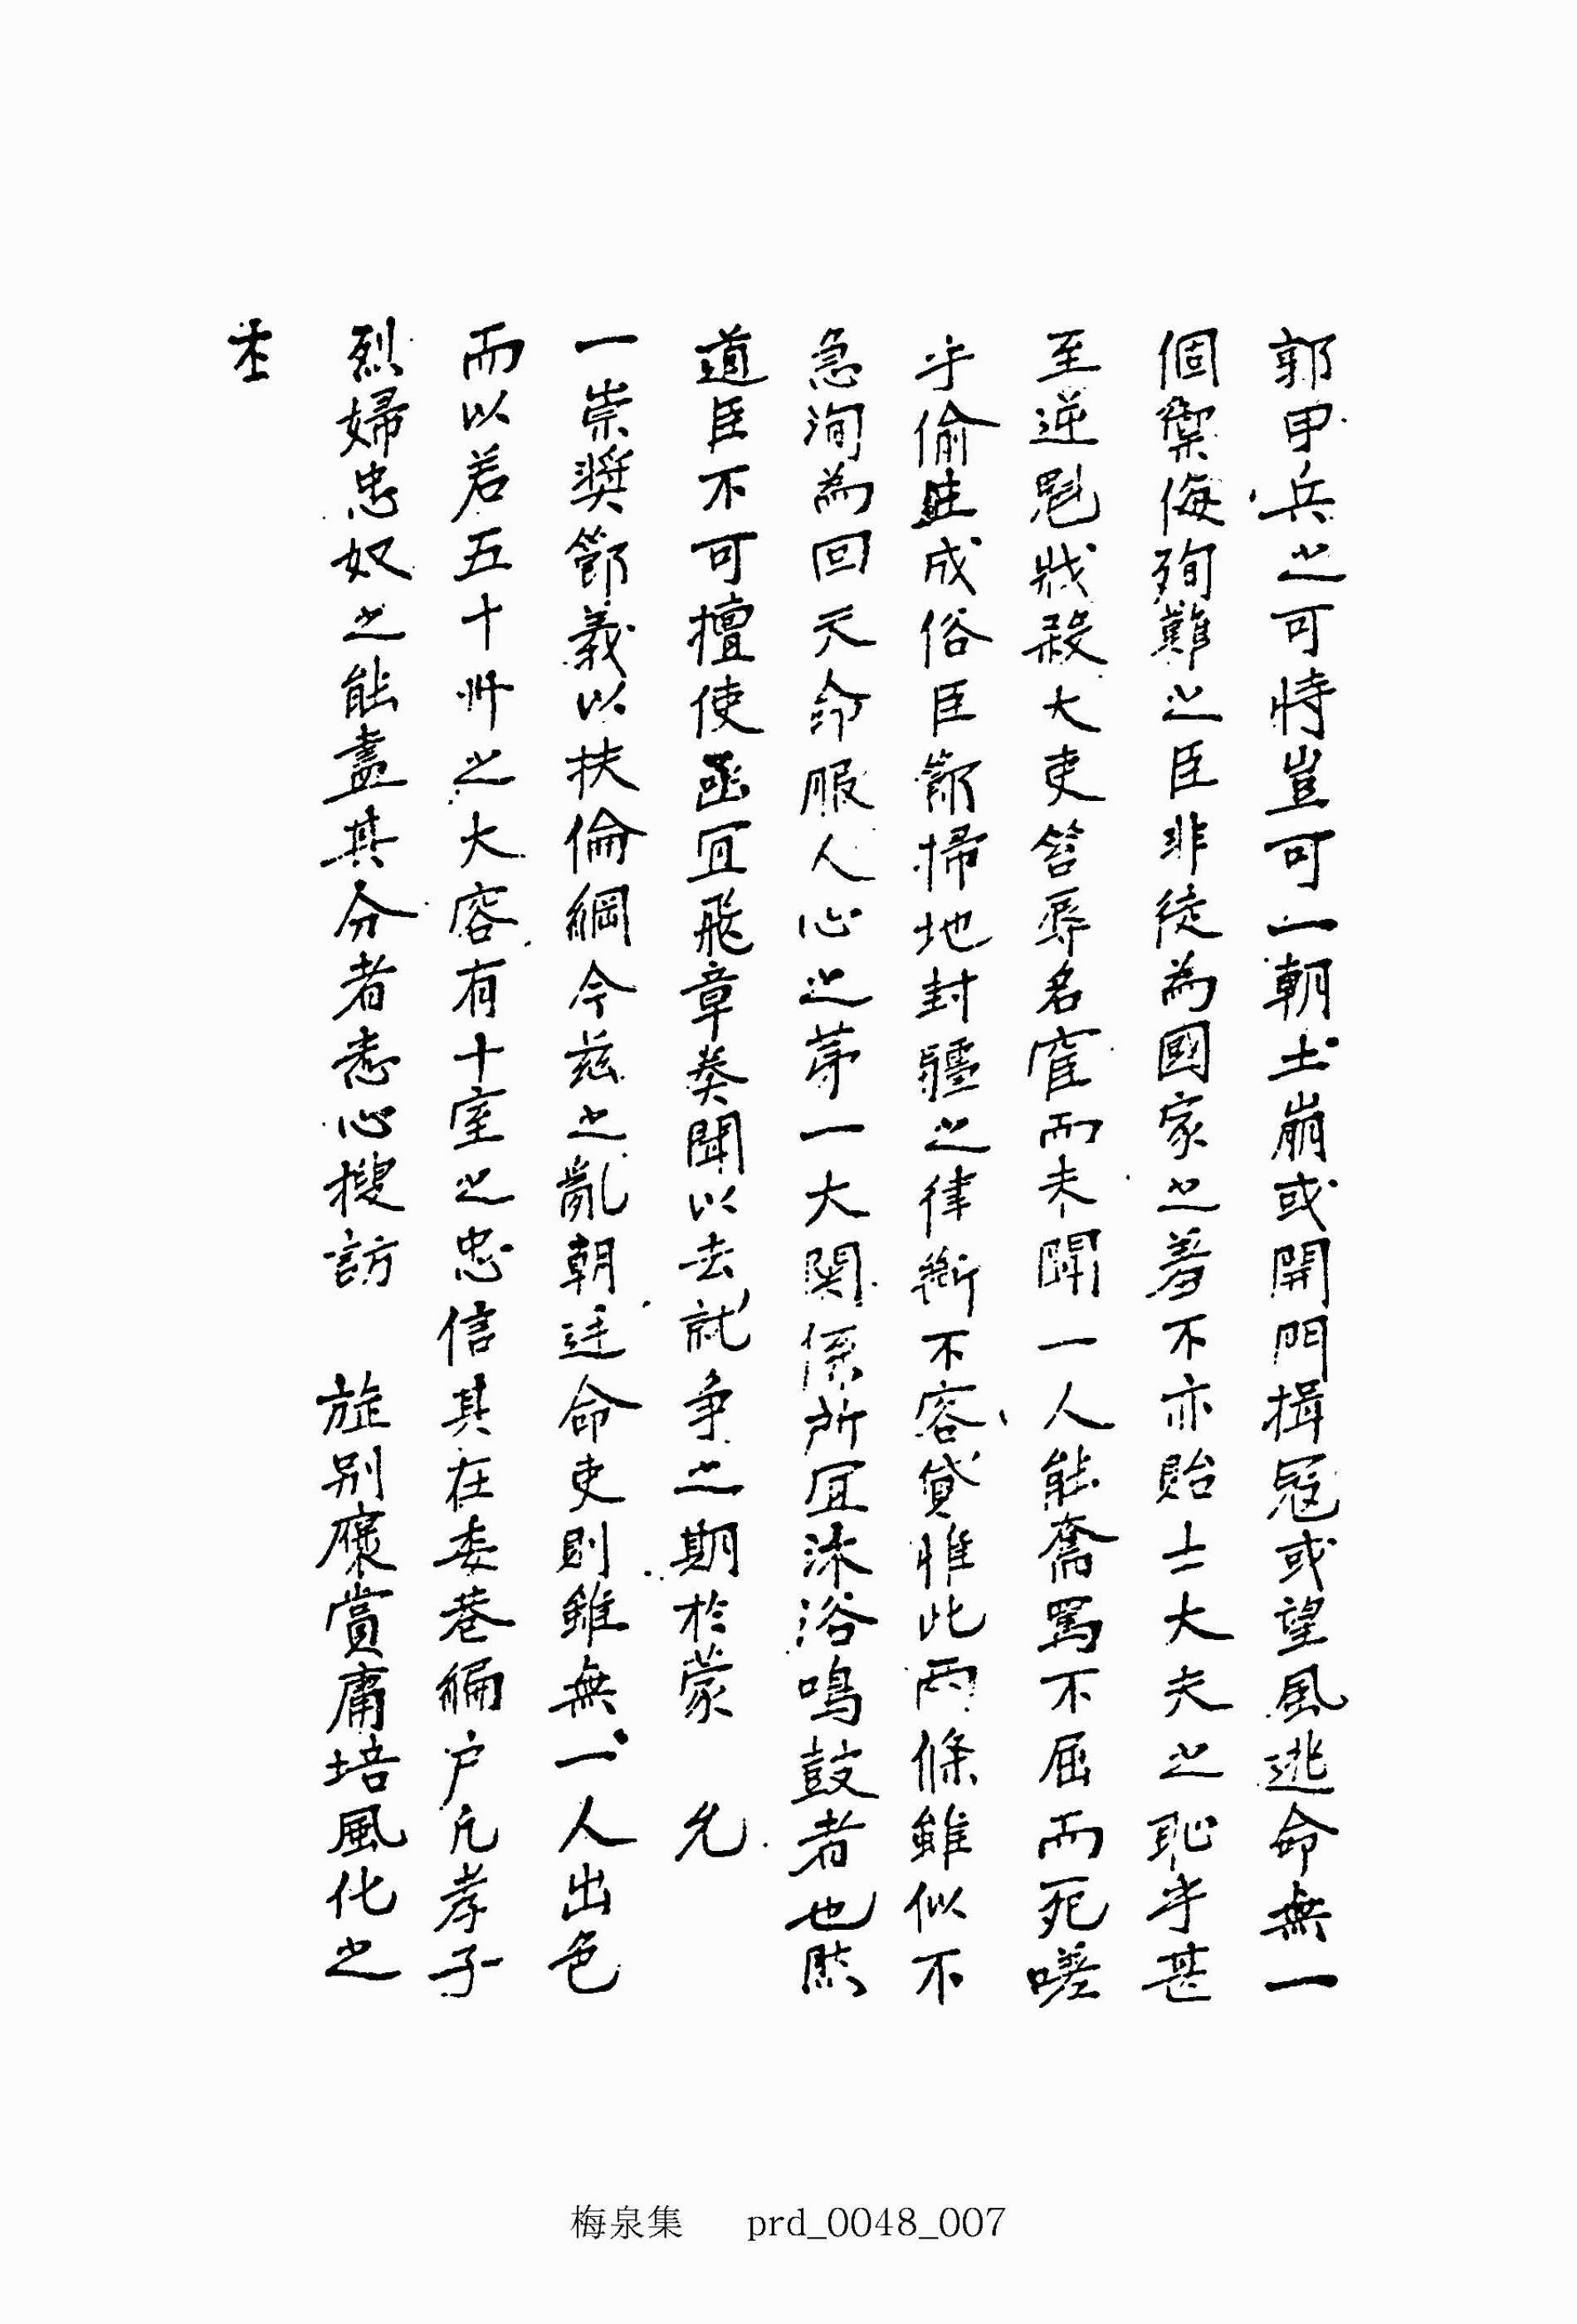 郭甲兵之可恃豈可一朝土崩或開門揖寇或望風逃命無一
個禦侮殉難之臣非徒為國家之羞不亦貽士大夫之恥乎甚
至逆魁戕殺大吏笞辱名宦而未聞一人能奮罵不屈而死嗟
乎偷生成俗臣節掃地封疆之律斷不容貸惟此兩條雖似不
急洵為回天命服人心之芽一大関係所宜沐浴鳴鼓者也監
道臣不可擅使亟宜飛章奏聞以去就争之期於蒙 允
一崇奬節義以扶倫綱今玆之亂朝廷命吏則雖無一人出色
而以若五十州之大容有十室之忠信其在委巷編户凡孝子
烈婦忠奴之能盡其分者悉心搜訪 旌别褒賞庸培風化之
本
梅泉集 prd_0048_007